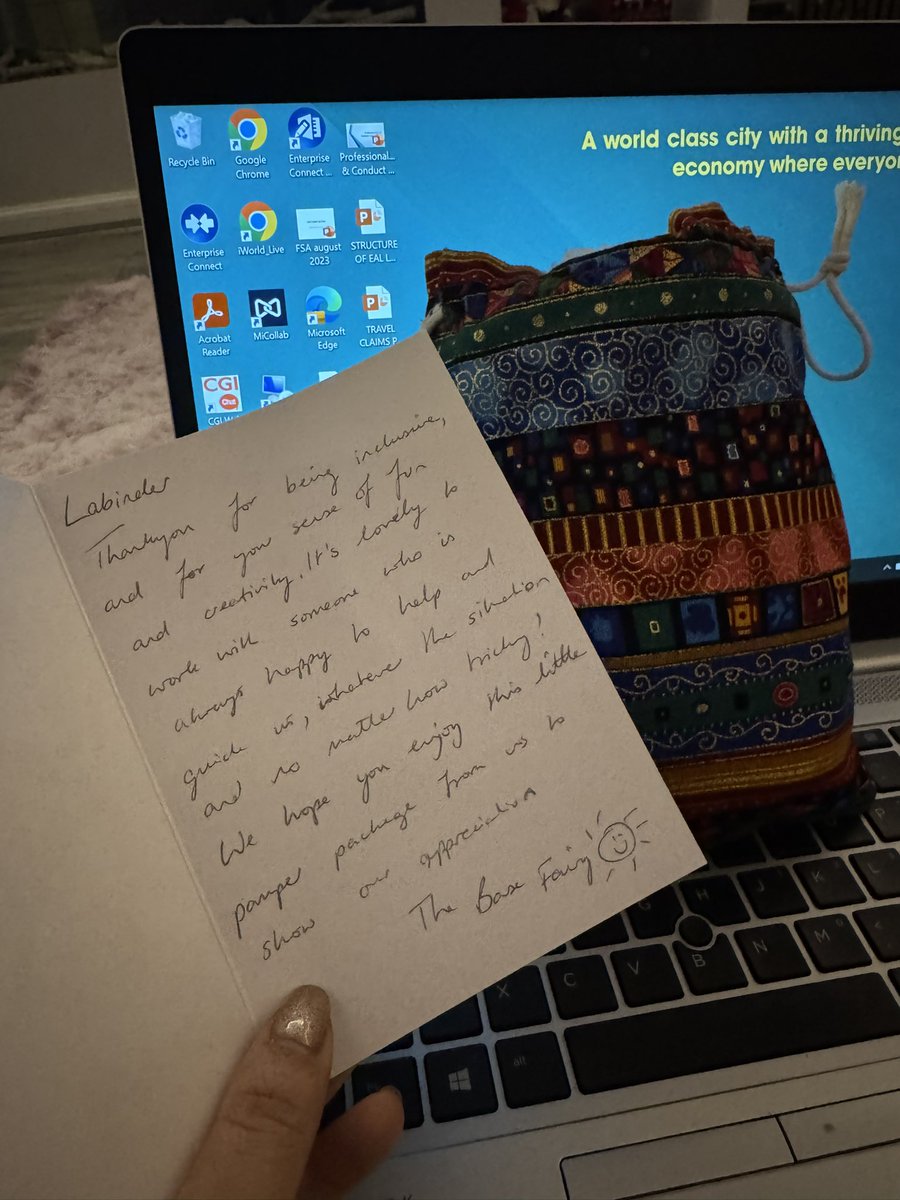 A world class city with a thriving
economy where everyon
Recycle Bin
Google
Chrome
Enterprise
Connect ...
Professional...
& Conduct ...
Enterprise
Connect
iWorld_Live
FSA august
2023
STRUCTURE
OF EAL L...
Acrobat
Reader
MiCollab
Microsoft
Edge
TRAVEL
CLAIMS P
CGI
Chat
Labinder
Thankyou for being inclusive,
and for you sense of fun
and creativity. It's lovely to
work with someone who is
always happy to help and
guide us, whatever the situation
and no matter how tricky!
We hope you enjoy this little
pamper package from us to
show our appreciation
The Base Fairy
G H J K L
X C V B N M
P
alt